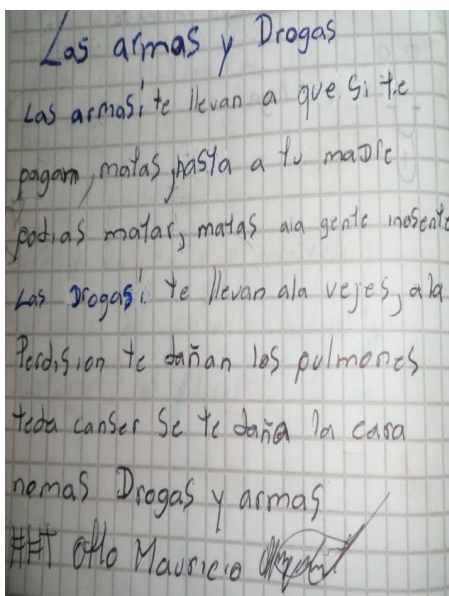 Las armas y Drogas
Las armas: te llevan a que si te
pagam, matas, hasta a tu maDre
podias matar, matas ala gente inosente
Las Drogas: te llevan ala vejes, ala
Perdision te dañan los pulmones
teda canser se te daña la cara
nomas Drogas y armas
Otto Mauricio